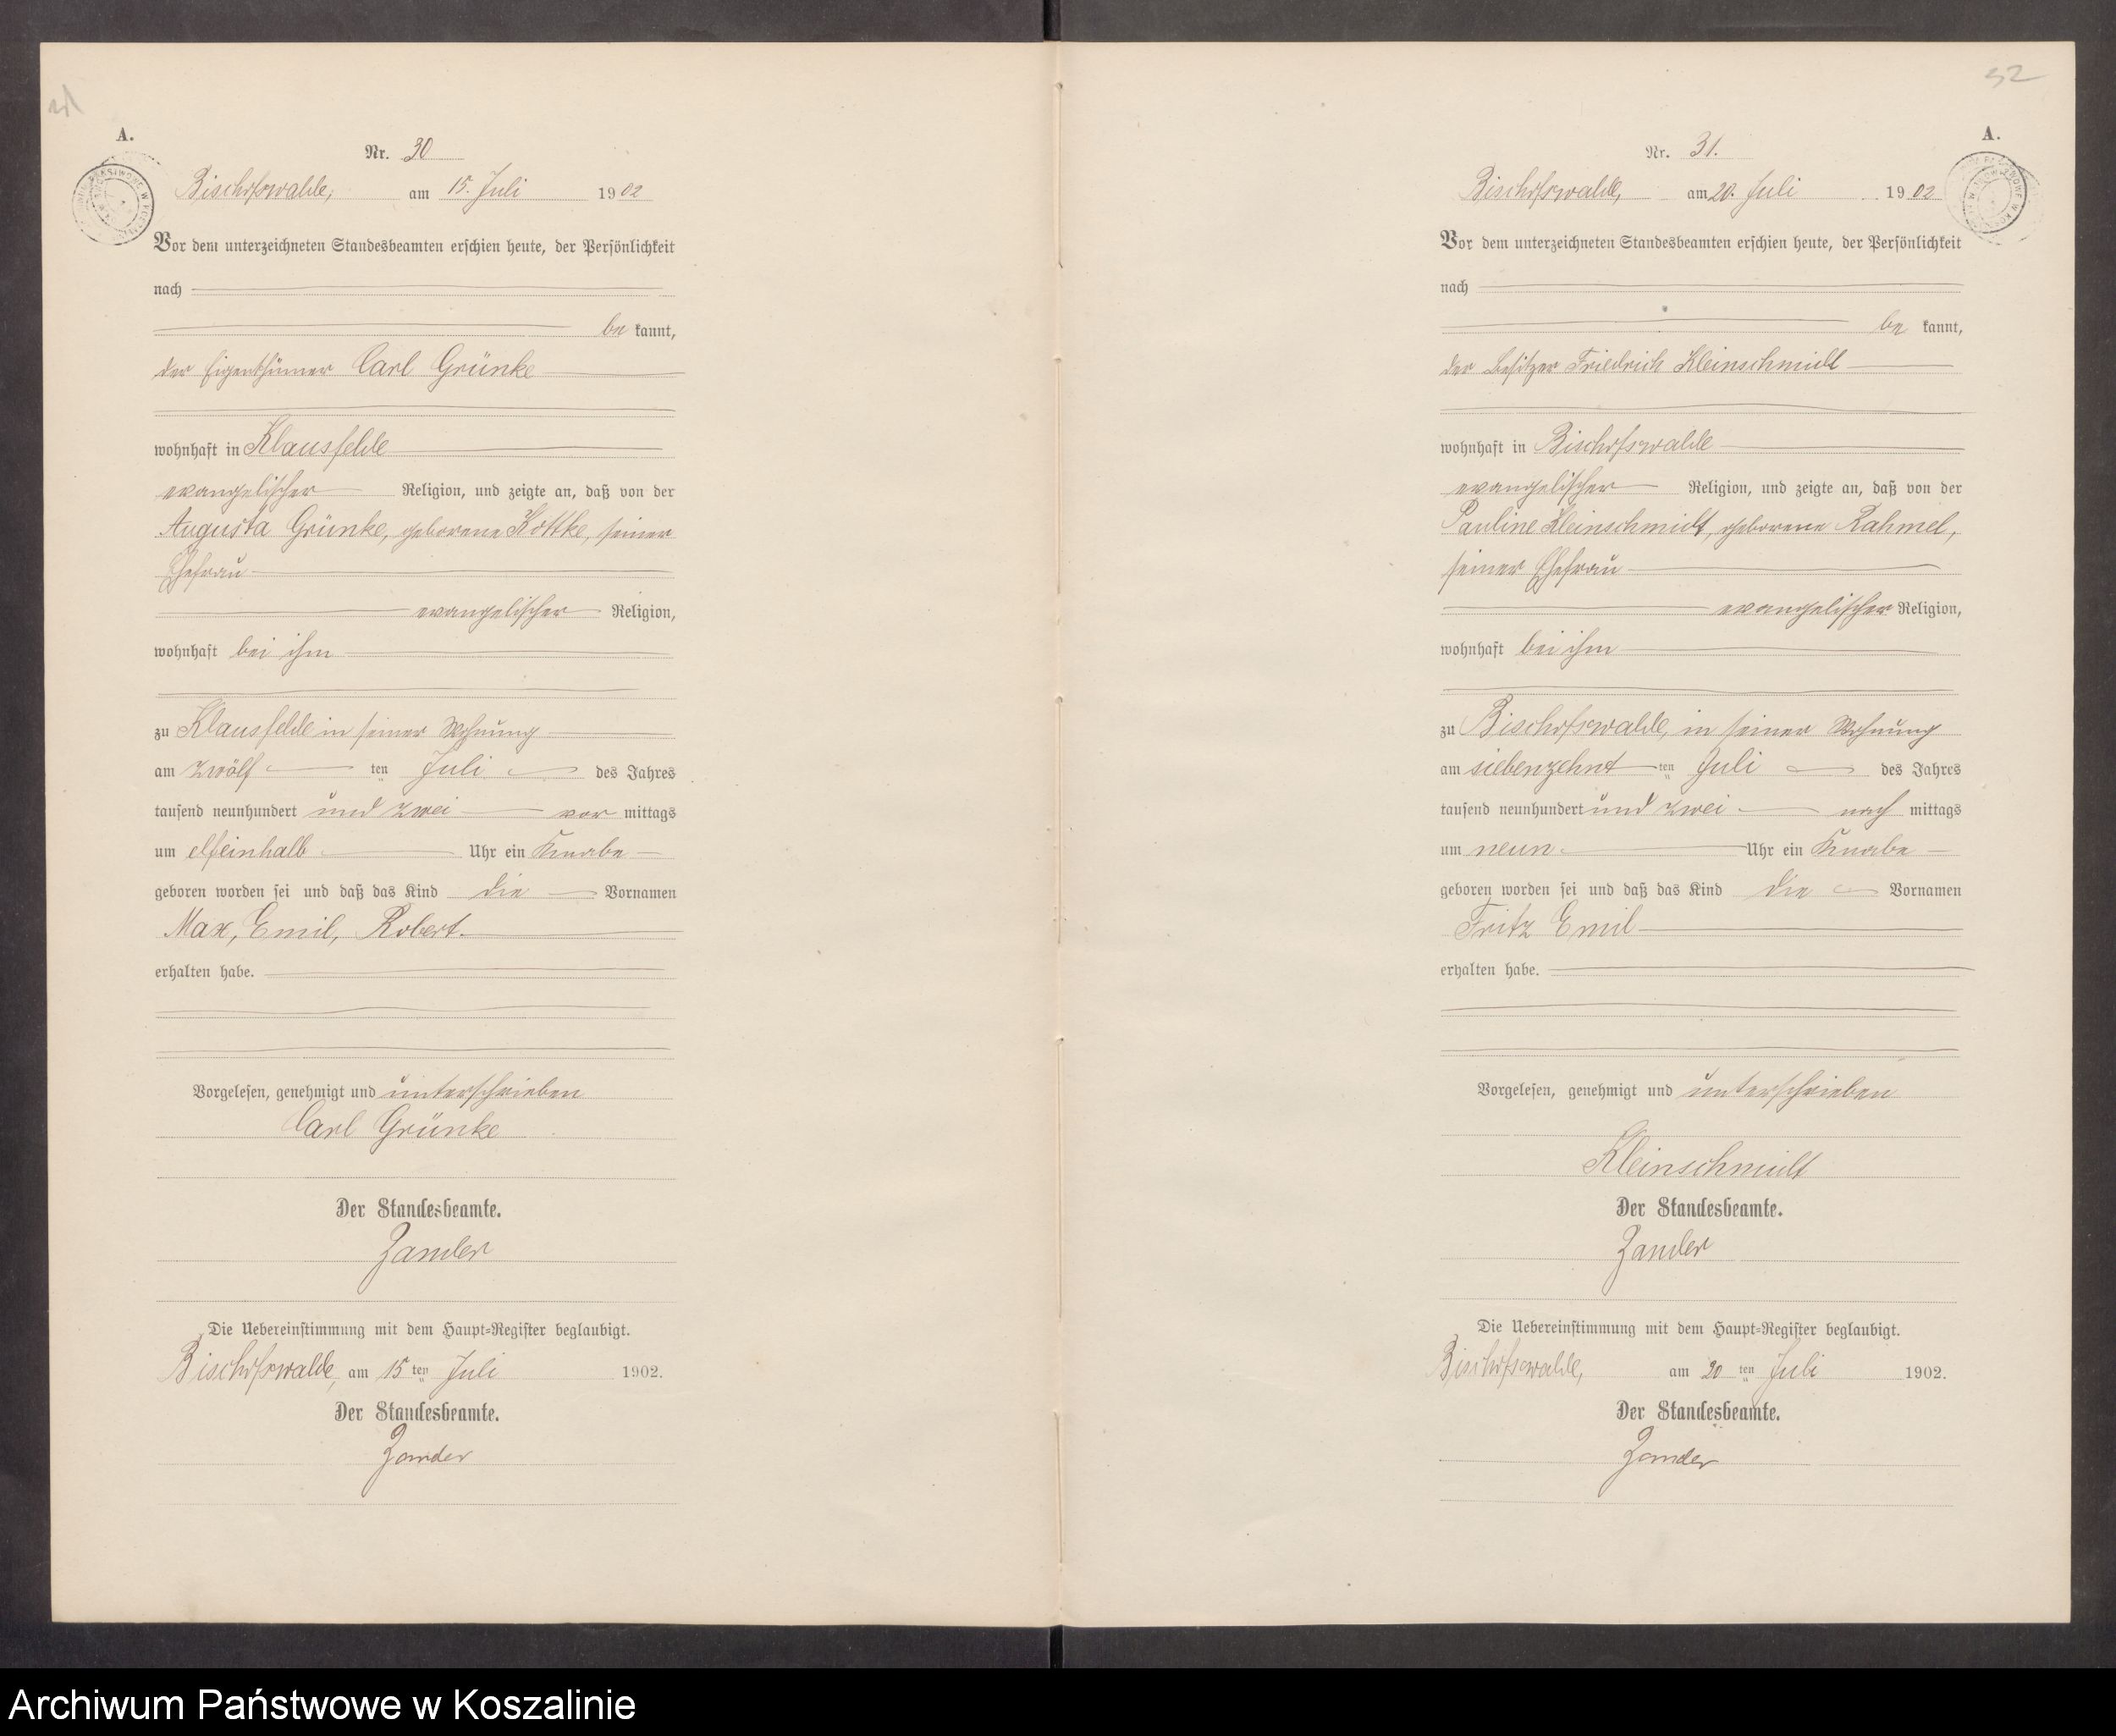 A.
Nr. 30
Bischofswalde, am 15. Juli 1902
Vor dem unterzeichneten Standesbeamten erschien heute, der Persönlichkeit
nach
be kannt,
der Eigenthümer Carl Grünke
wohnhaft in Klausfelde
evangelischer Religion, und zeigte an, daß von der
Augusta Grünke, geborene Kottke, seiner
Ehefrau
evangelischer Religion,
wohnhaft bei ihm
zu Klausfelde in seiner Wohnung
am zwölf ten Juli des Jahres
tausend neunhundert und zwei vor mittags
um elfeinhalb Uhr ein Knabe
geboren worden sei und daß das Kind die Vornamen
Max, Emil, Robert.
erhalten habe.
Vorgelesen, genehmigt und unterschrieben
Carl Grünke
Der Standesbeamte.
Zander
Die Uebereinstimmung mit dem Haupt-Register beglaubigt.
Bischofswalde, am 15 ten Juli 1902.
Der Standesbeamte.
Zander
52
A.
Nr. 31.
Bischofswalde, am 20. Juli 1902
Vor dem unterzeichneten Standesbeamten erschien heute, der Persönlichkeit
nach
be kannt,
der Besitzer Friedrich Kleinschmidt
wohnhaft in Bischofswalde
evangelischer Religion, und zeigte an, daß von der
Pauline Kleinschmidt, geborene Rahmel,
seiner Ehefrau
evangelischer Religion,
wohnhaft bei ihm
zu Bischofswalde, in seiner Wohnung
am siebenzehnt ten Juli des Jahres
tausend neunhundert und zwei nach mittags
um neun Uhr ein Knabe
geboren worden sei und daß das Kind die Vornamen
Fritz Emil
erhalten habe.
Vorgelesen, genehmigt und unterschrieben
Kleinschmidt
Der Standesbeamte.
Zander
Die Uebereinstimmung mit dem Haupt-Register beglaubigt.
Bischofswalde, am 20 ten Juli 1902.
Der Standesbeamte.
Zander
Archiwum Państwowe w Koszalinie